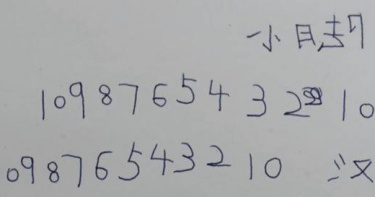 小月
10987654 3 2 10
09876543210 汉